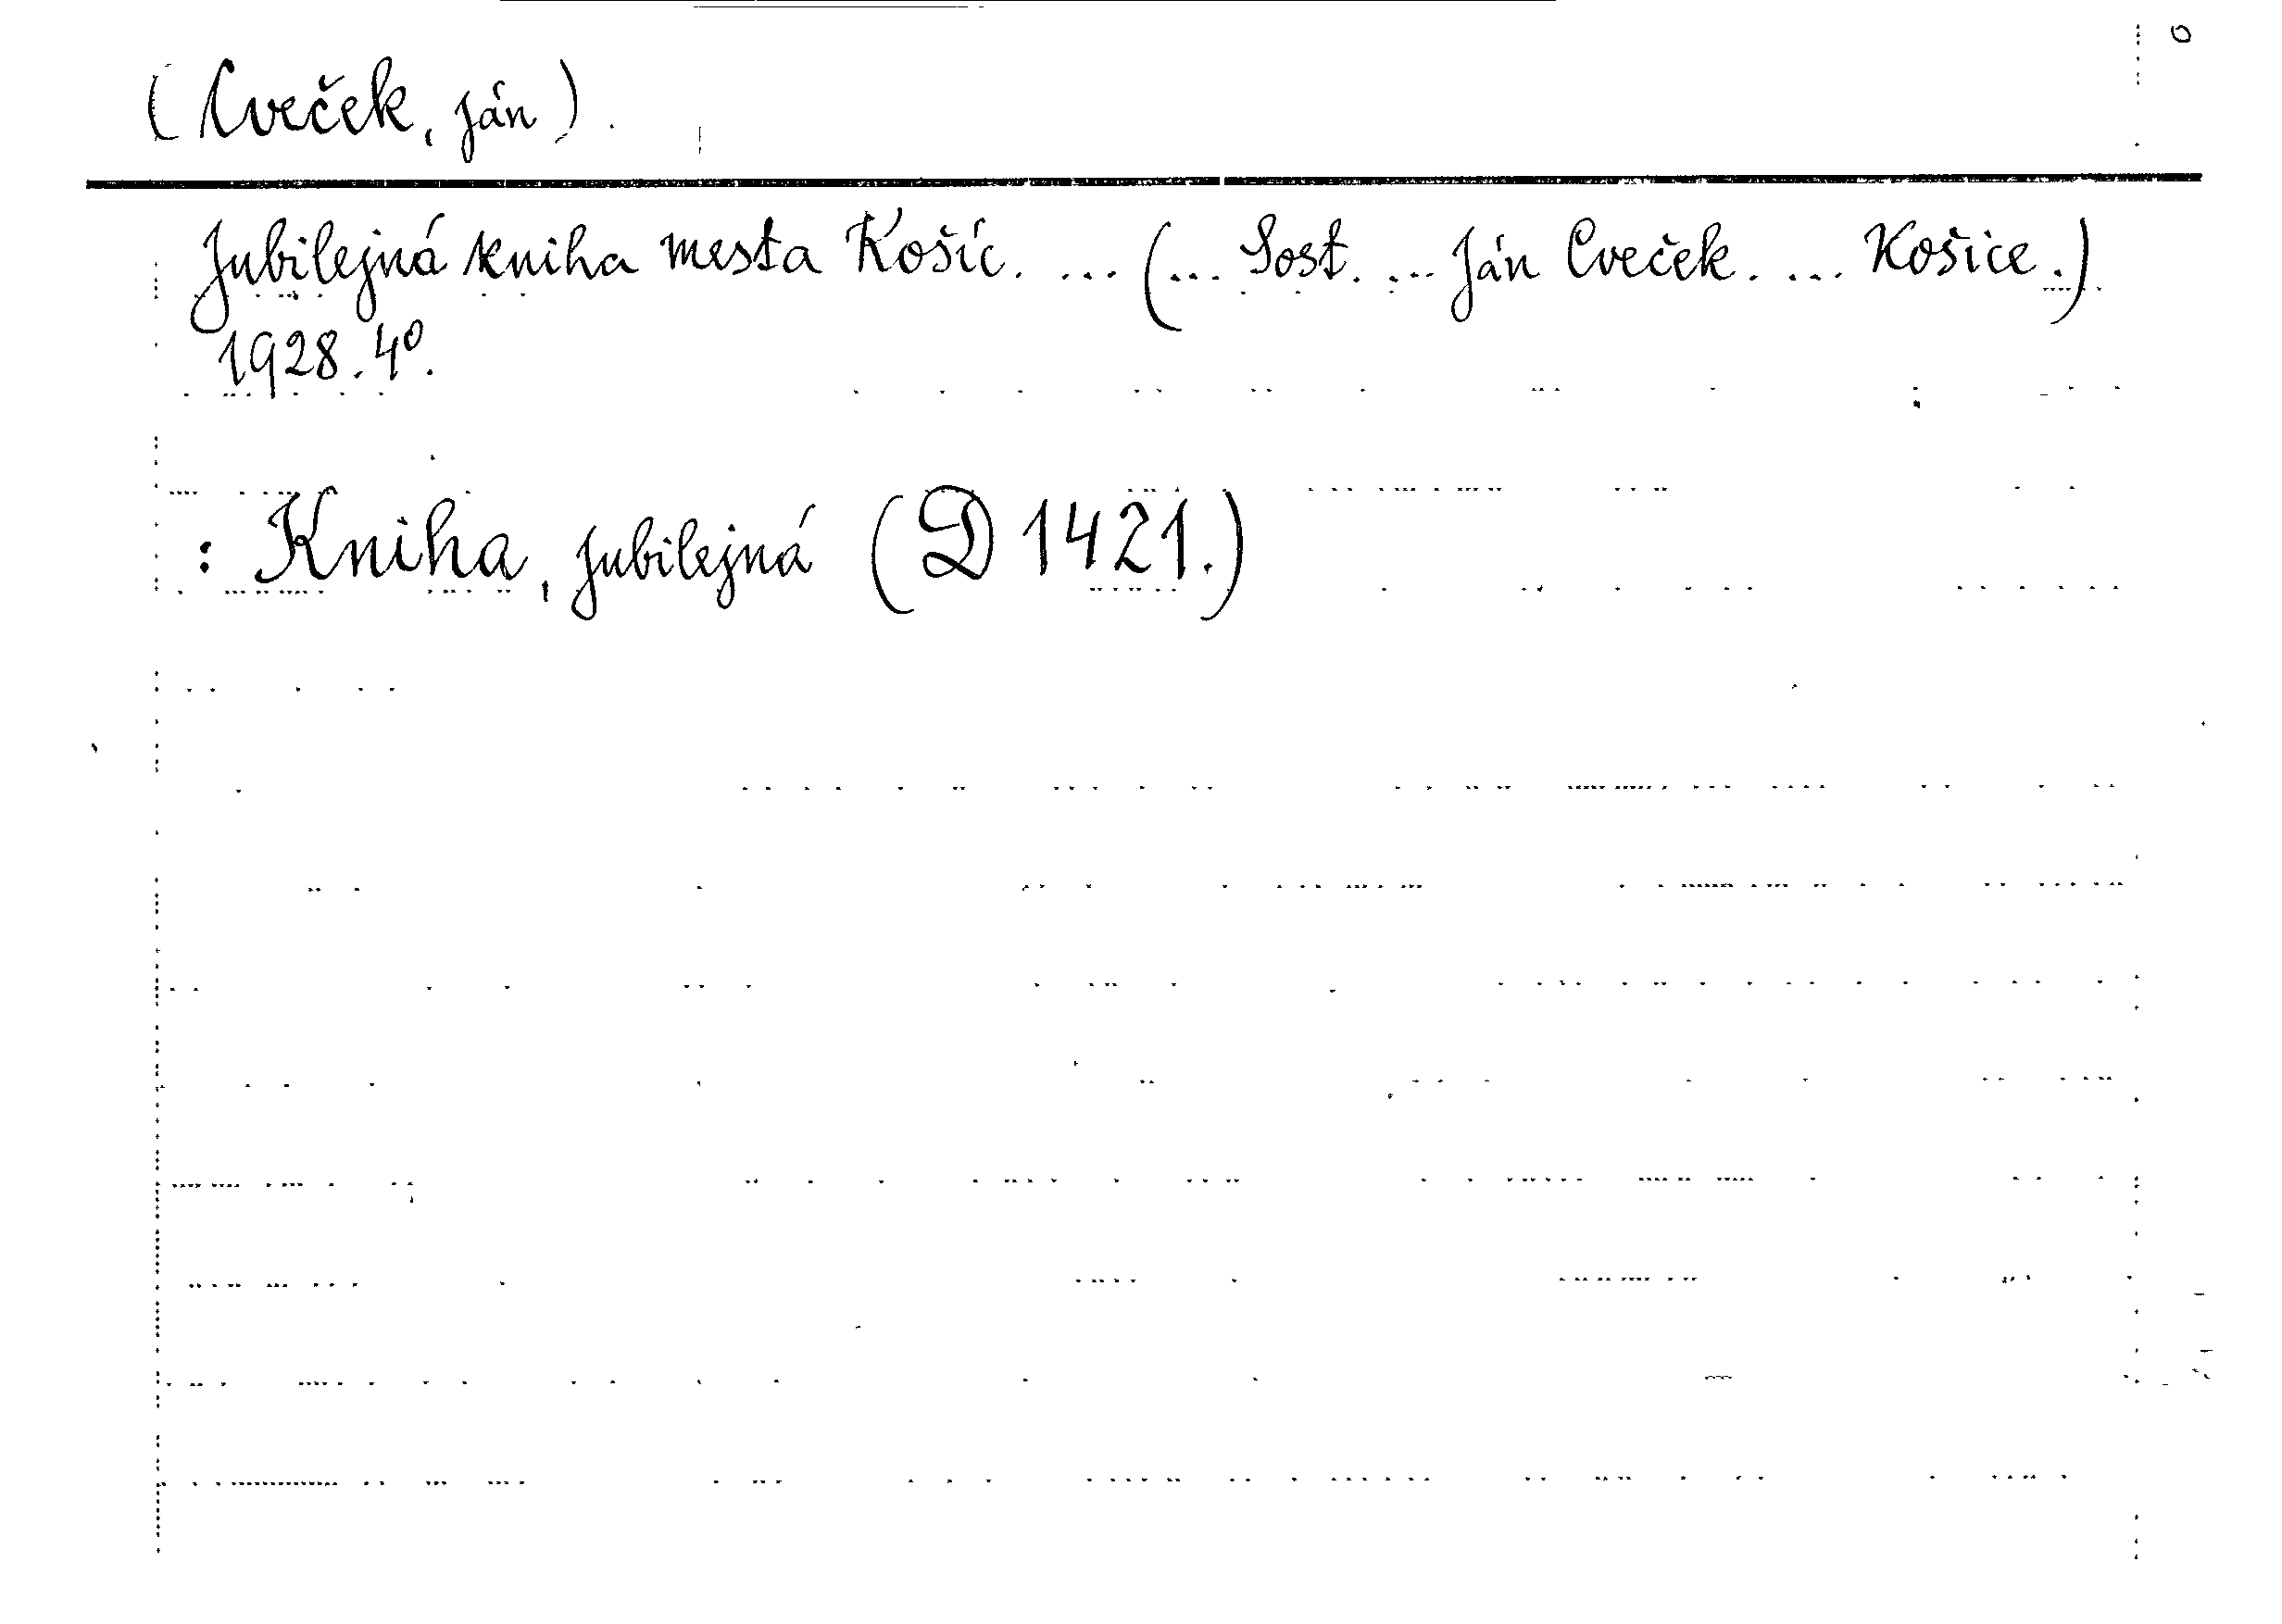 (Cveček, Ján).
Jubilejná kniha mesta Košíc. ... (... Sost. ... Ján Cveček. ... Košice.)
1928. 4º.
: Kniha, jubilejná (D 1421.)